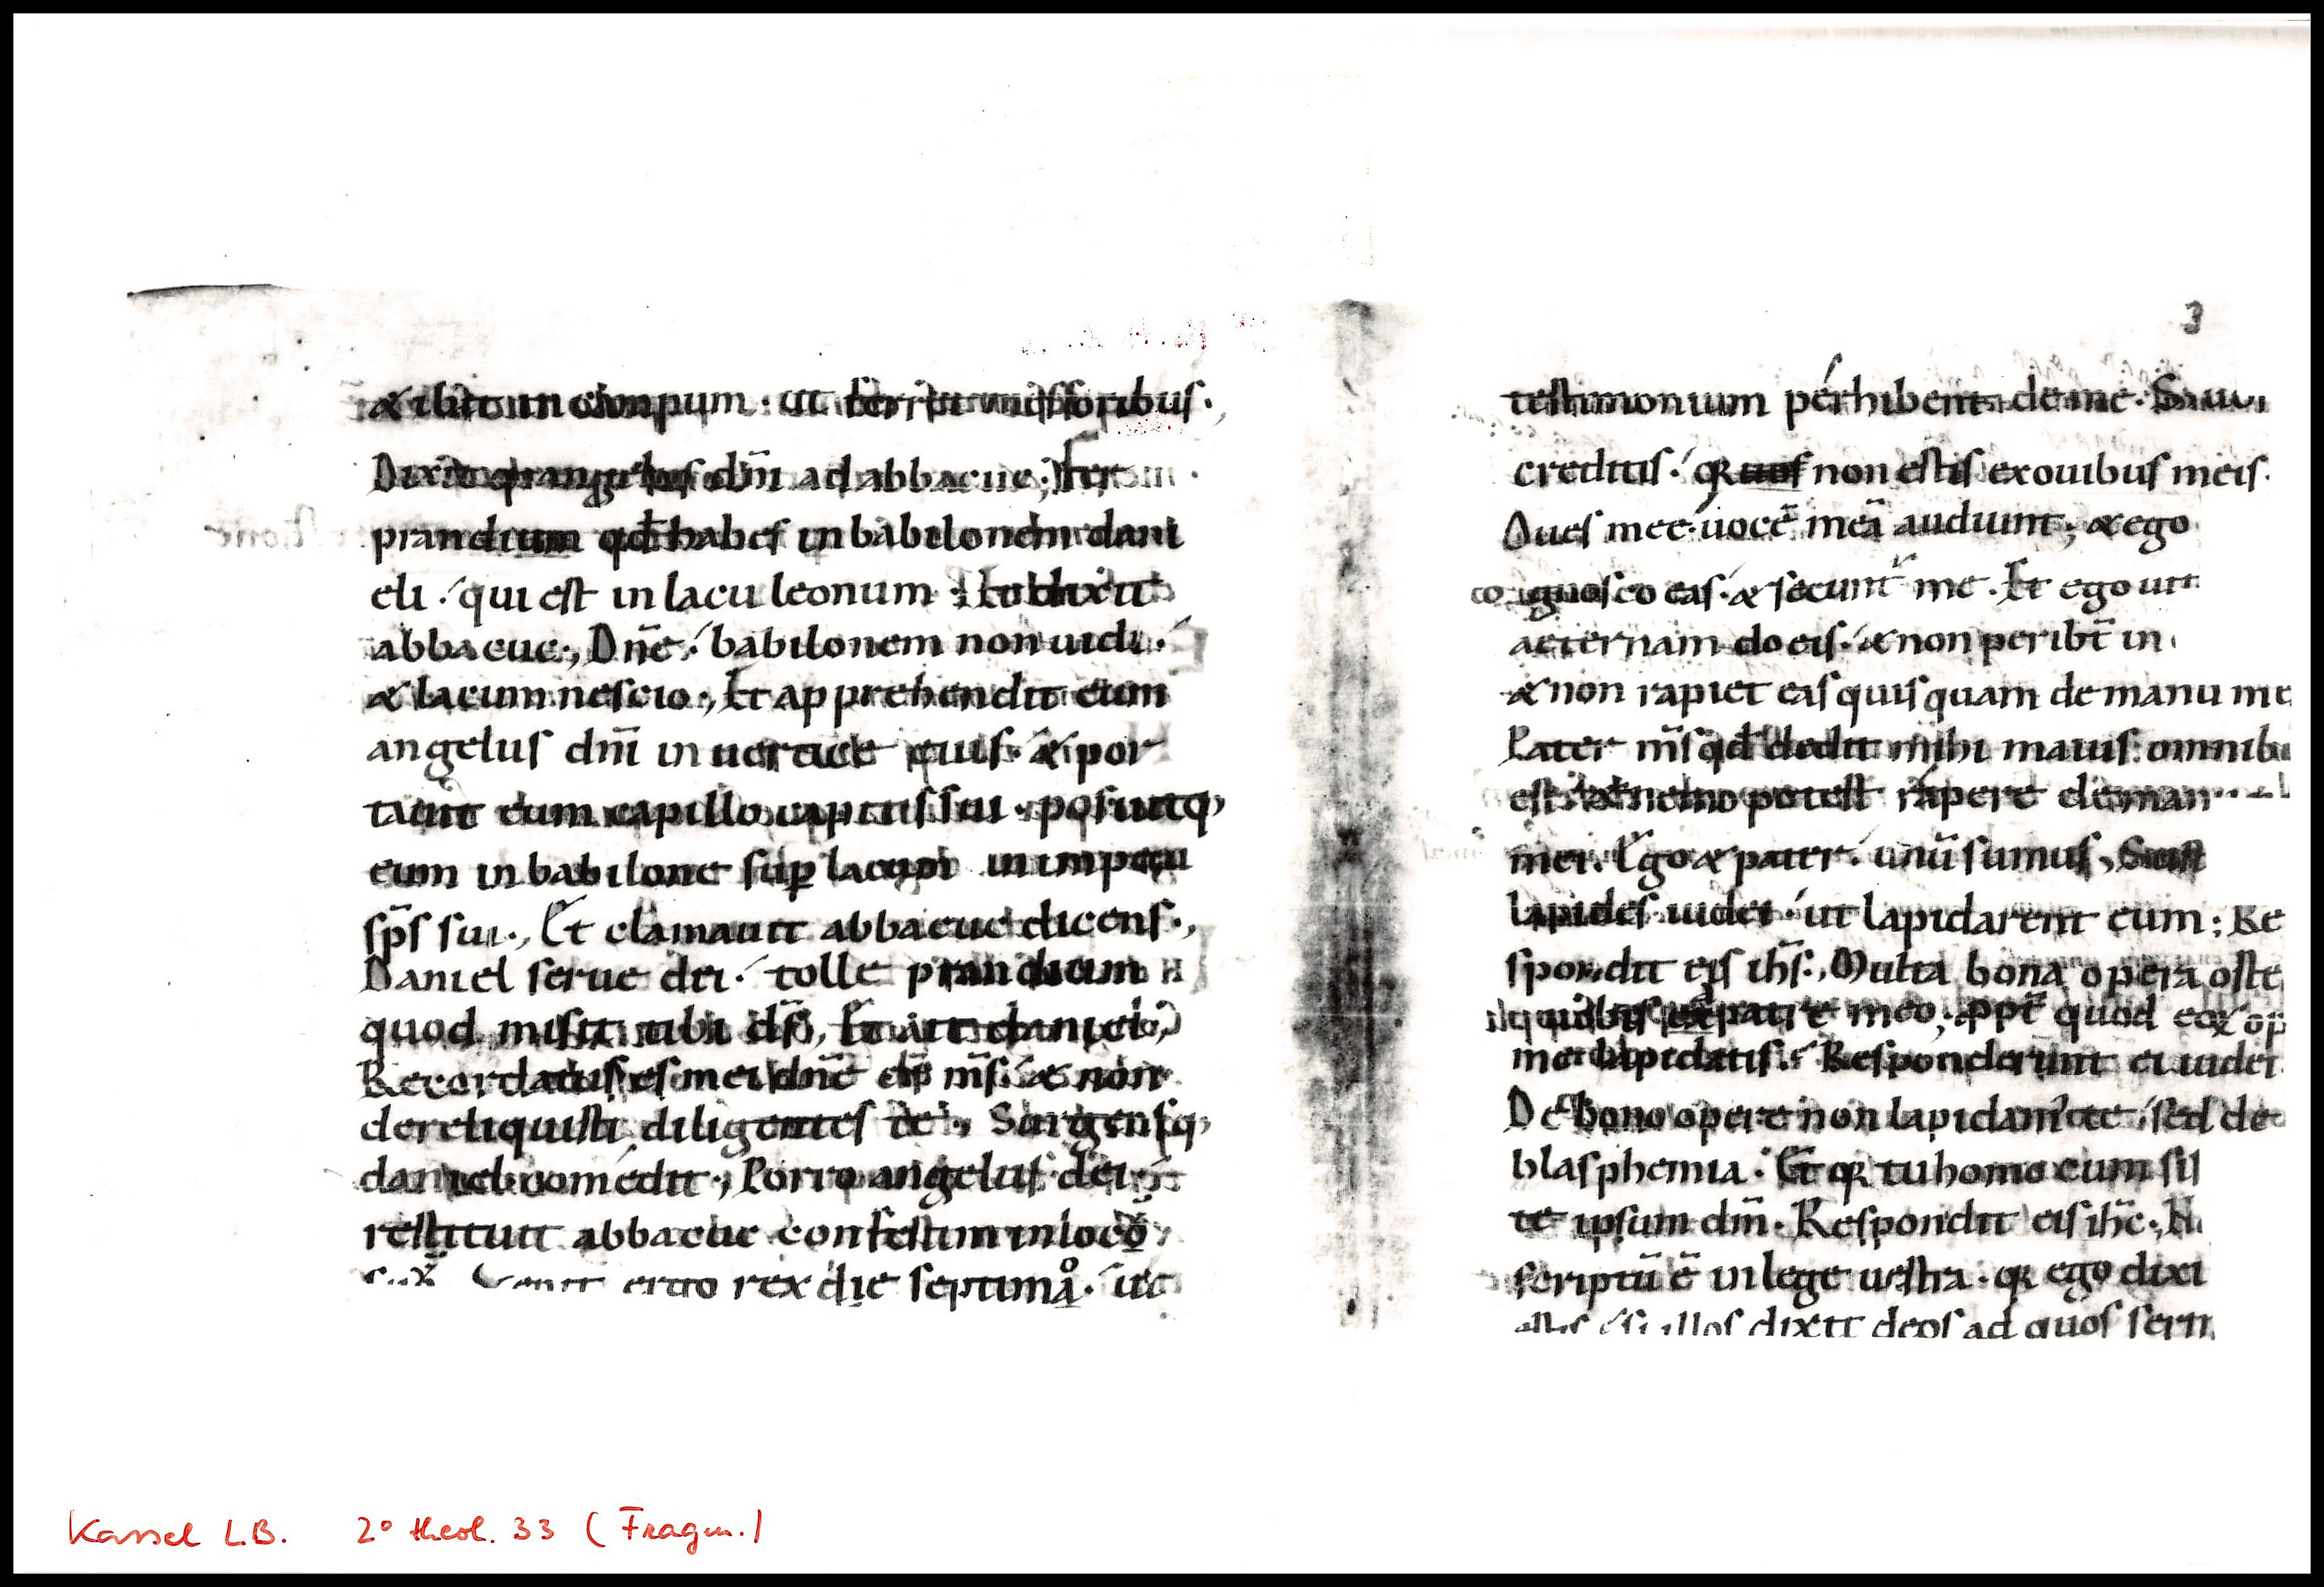 & ibat in campum · ut ferret messoribus ·
Dixitq; angelus dn̄i ad abbacuc ; Fer
prandium qđ habes in babilonem dani
eli · qui est in lacu leonum · Et dixit
abbacuc ·, Dn̄e · babilonem non uidi ·
& lacum nescio ·, Et apprehendit eum
angelus dn̄i in uertice eius · & por
tauit eum capillo capitis sui · posuitq;
eum in babilone sup̱ lacum in impetu
sp̄s sui ·, Et clamauit abbacuc dicens ·,
Daniel serue dei · tolle prandium
quod misit tibi d̄s ·, Et ait daniel ;
Recordatus es mei dn̄e d̄s m̄s · & non
dereliquisti diligentes te ·, Surgensq;
daniel comedit ·, Porro angelus dei
restituit abbacuc confestim in loco
suo Venit ergo rex die septima · ut
3
testimonium perhibent de me · S
creditis · qR non estis ex ouibus meis ·
Oues mee · uocē meā audiunt ; & ego
cognosco eas · & secunt᷑ me · Et ego uit
aeternam do eis · & non peribt̄ in
& non rapiet eas quisquam de manu me
Pater m̄s qđ dedit mihi maius omnib
est · & nemo potest rapere de man
mei · Ego & pater · unū sumus ·, Sust
lapides iudei · ut lapidarent eum ; Re
spondit eis ih̄s ·, Multa bona opera oste
uobis ex patre meo · ppt̄ quod eoꝝ op̄
me lapidatis · Responderunt ei iudei
De bono opere non lapidam᷒ te · sed de
blasphemia · Et qR tu homo cum sis
te ipsum dm̄ · Respondit eis ih̄c · N
scriptū ē in lege uestra · qR ego dixi
estis · si illos dixit deos ad quos serm
Kassel L.B. 2° theol. 33 (Fragm.)